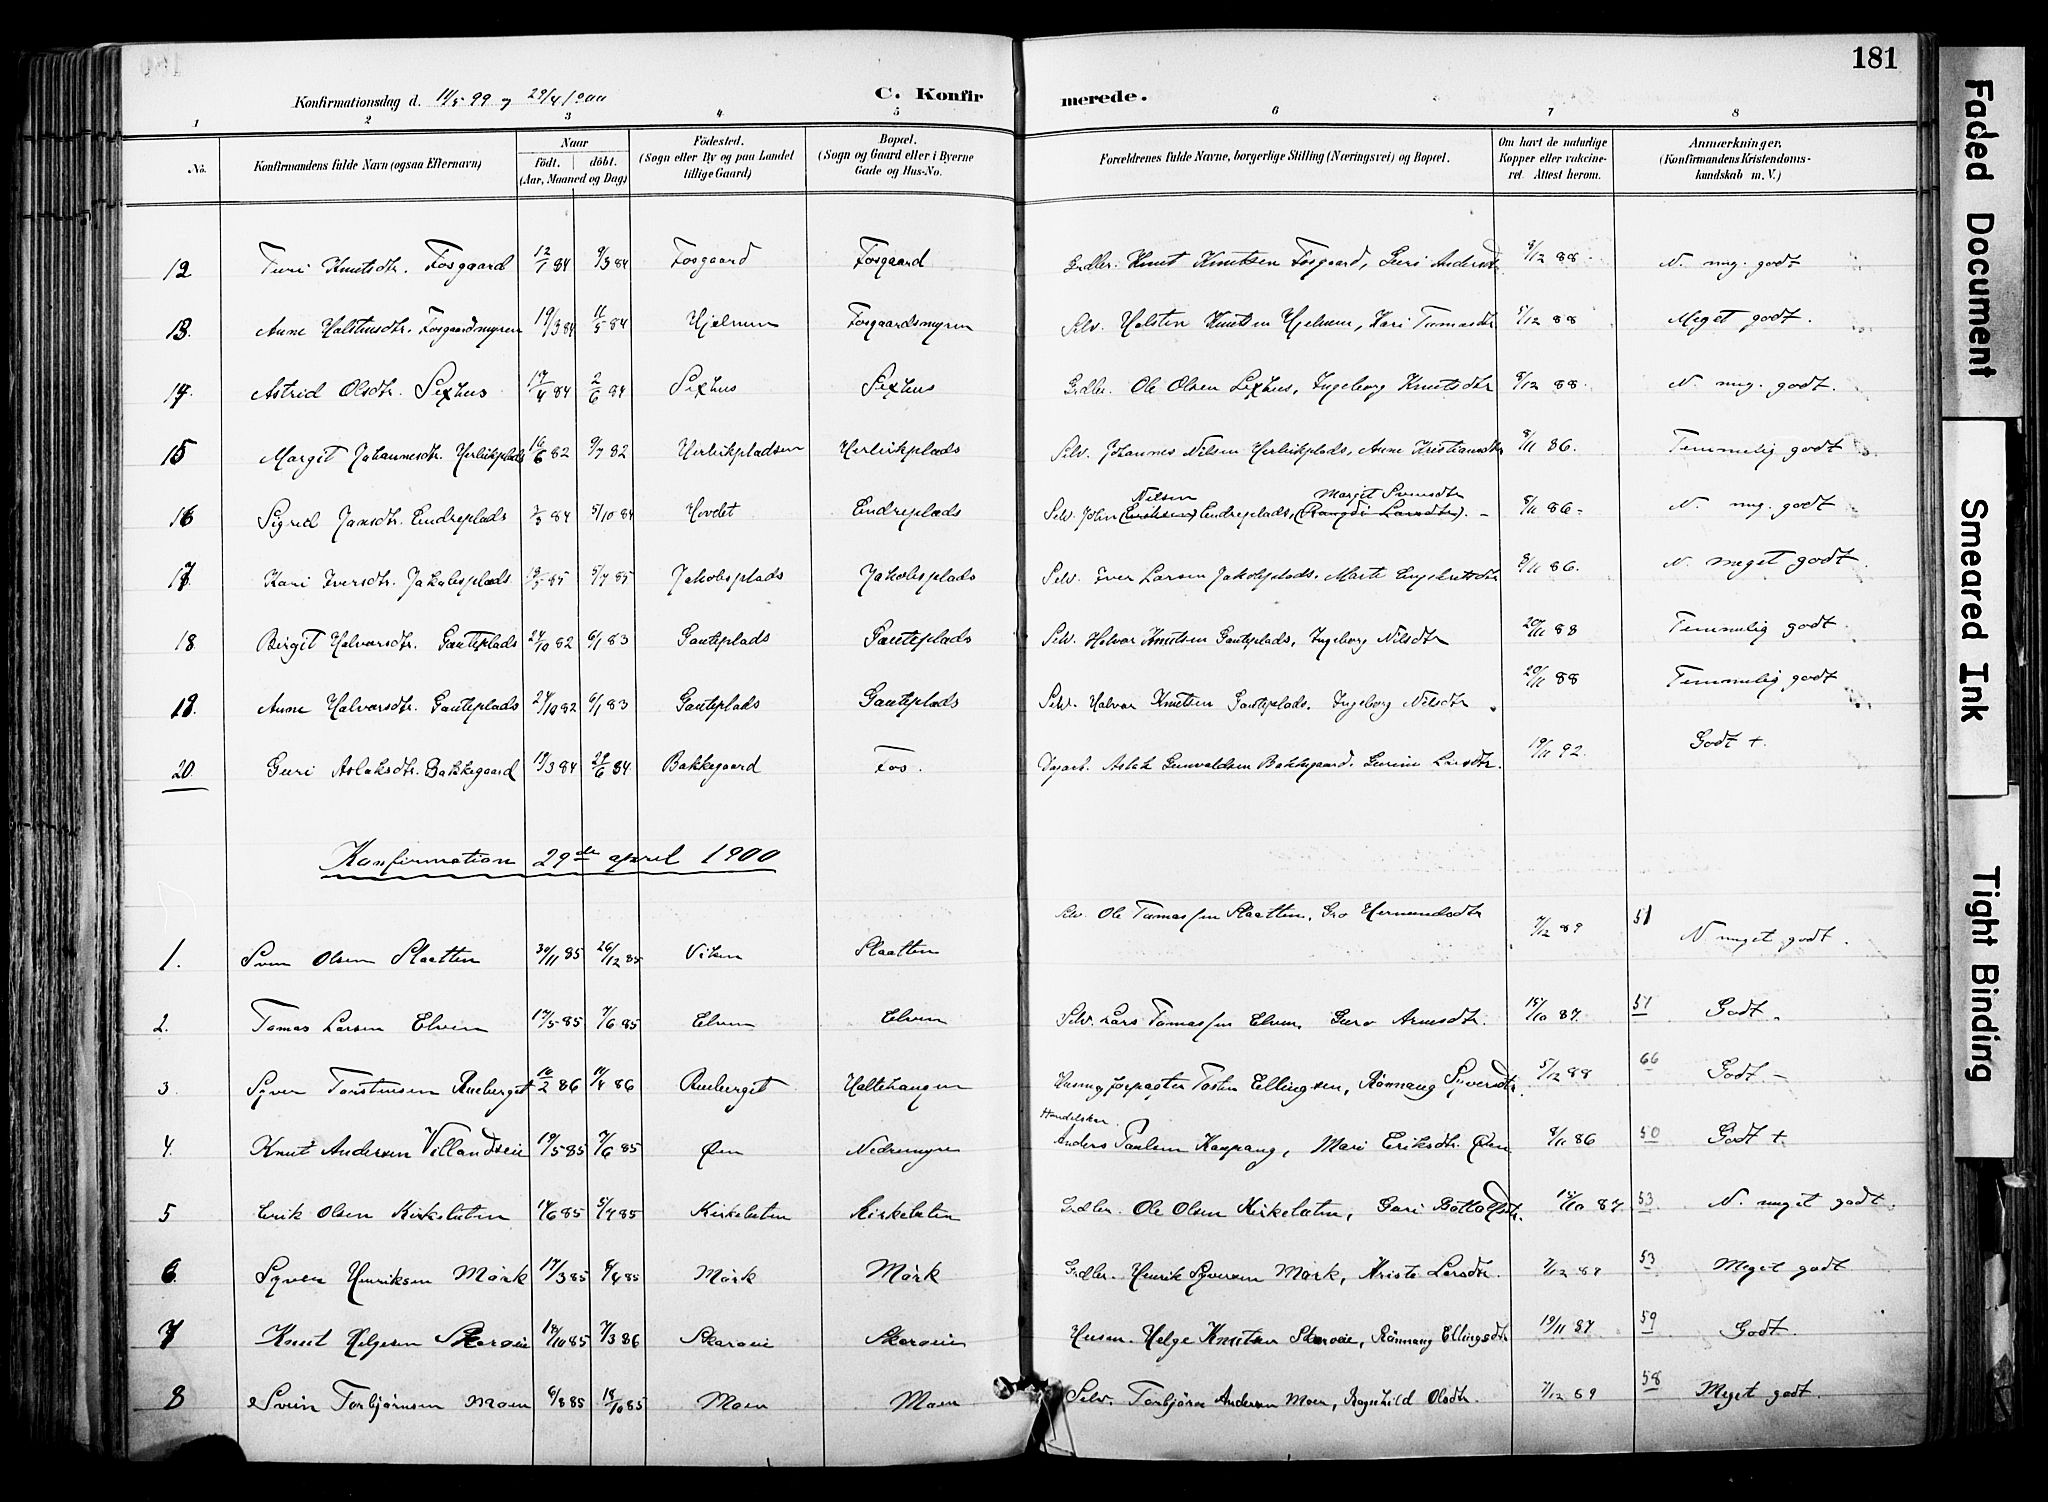 181
Konfirmationsdag d. 11/5 99 og 29/4 1900 C. Konfirmerede.
1 2 3 4 5 6 7 8
No. Konfirmandens fulde Navn (ogsaa Efternavn) Naar født. døbt. (Aar, Maaned og Dag) Födested. (Sogn eller By og paa Landet tillige Gaard) Bopæl. (Sogn og Gaard eller i Byerne Gade og Hus-No. Forældrenes fulde Navne, borgerlige Stilling (Næringsvei) og Bopæl. Om havt de naturlige Kopper eller vakcineret. Attest herom. Anmærkninger. (Konfirmandens Kristendomskundskab m. V.)
12 Turi Knutsdtr. Fosgaard 12/1 84 9/3 84 Fosgaard Fosgaard Grdlr. Knut Knutsen Fosgaard, Guri Andersdtr 8/12 88 N. meg. godt
13. Anne Halstensdtr. Fosgaardsmyren 19/3 84 11/5 84 Hjelmen Fosgaardsmyren Selv. Halsten Knutsen Hjelmen, Kari Tomasdtr 8/12 88 Meget godt.
14. Astrid Olsdtr. Sexhus 17/4 84 2/6 84 Sexhus Sexhus Grdlr. Ole Olsen Sexhus, Ingeborg Knutsdtr 8/12 88. N. meg. godt.
15 Margit Johannesdtr. Herlikplads 16/6 82 9/7 82 Herlikpladsen Herlikplads Selv. Johannes Nilsen Herlikplads, Anne Kristiansdtr 8/11 86. Temmelig godt
Nilsen Margit Svensdtr
16 Sigrid Jansdtr. Endreplads 5/10 84 Hovdet Endreplads Selv. John (Eriksen) Endreplads, (Rangdi Larsdtr). 8/11 86 N. meg. godt
17 Kari Iversdtr. Jakobsplads 5/7 85 Jakobsplads Jakobsplads Selv. Iver Larsen Jakobsplads. Marit Engebretsdtr 8/11 86. N. meget godt.
18 Birgit Halvorsdtr. Gauteplads 24/10 82 6/1 83 Gauteplads Gauteplads Selv. Halvor Knutsen Gauteplads, Ingeborg Nilsdtr 20/11 88 Temmelig godt
19. Anne Halvorsdtr. Gauteplads 24/10 82 6/1 83 Gauteplads Gauteplads Selv. Halvor Knutsen Gauteplads. Ingeborg Nilsdtr 20/11 88 Temmelig godt
20. Guri Aslaksdtr. Bakkegaard 19/3 84 Bakkegaard Fos. Dagarb. Aslak Gunvaldsen Bakkegaard. Gurine Larsdtr. 19/11 92. Godt +.
Konfirmation 29de april 1900
1. Sven Olsen Slaatten 30/11 85 26/12 85 Viken Slaatten Selv. Ole Tomassen Slaatten, Gro Hermundsdtr 7/12 89 51 N meget godt.
2. Tomas Larsen Elven 17/5 85 7/6 85 Elven Elven Selv. Lars Tomassen Elven, Guro Arnesdtr. 15/10 87. 51 Godt.
3 Syver Torstensen Rueberget 16/2 86 11/4 86 Rueberget Haltehaugen Torsten Ellingsen, Rönnaug Syversdtr. 5/12 88 66 Godt -
Handelskar.
4. Knut Andersen Villandseie 19/5 85 7/6 85 Øen Nedremyre Anders Paulsen Kaupang, Mari Eriksdtr. Øen 8/11 86 50 Godt +
5 Erik Olsen Kirkeluten Kirkeluten Kirkeluten Grdlr. Ole Olsen Kirkeluten, Guri Bottolfsdtr. 15/10 87. 53 N. meget godt
6. Syver Henriksen Mörk 17/3 85 Mörk Mörk Grdlr. Henrik Syversen Mörk, Kristi Larsdtr. 7/12 89 53 Meget godt
7 Knut Helgesen Skaroeie 18/10 85 7/3 86 Skaroeie Skaroeie Husm. Helge Knutsen Skaroeie, Rönnaug Ellingsdtr 19/11 87 59 Godt.
8 Svein Torbjørnsen Moen 6/8 85 18/10 85 Moen Moen Selv. Torbjörn Andersen Moen, Ragnhild Olsdtr. 7/12 89 58 Meget godt.
Faded Document
Smeared Ink
Tight Binding